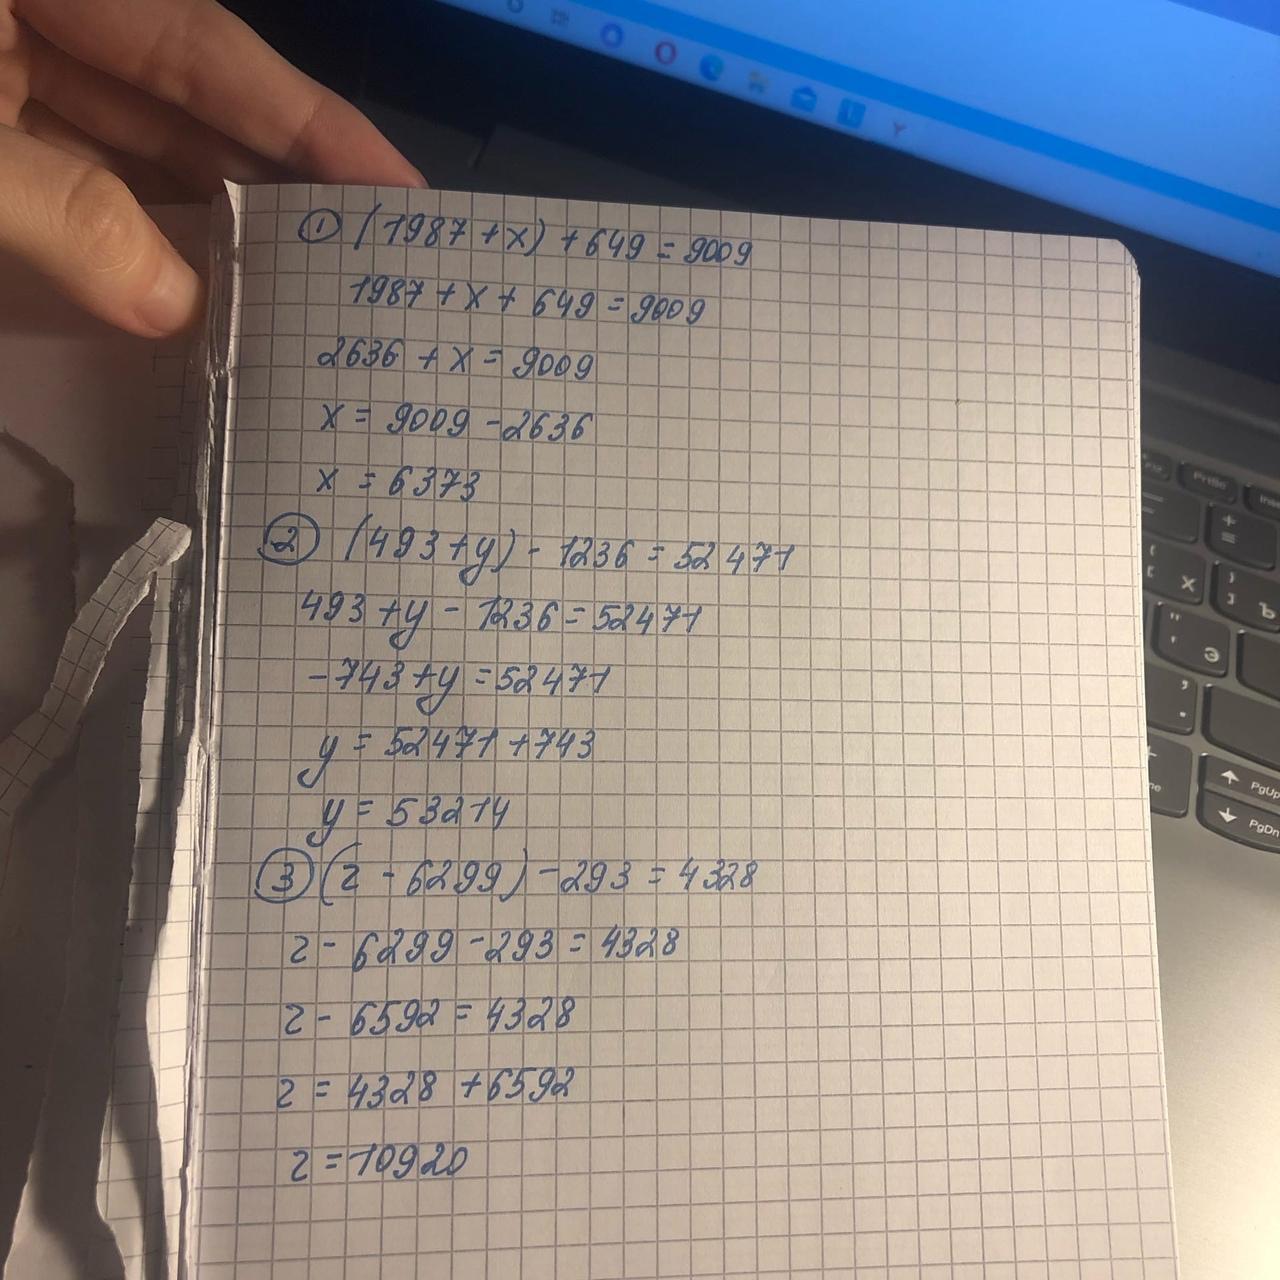 ① (1987 + x) + 649 = 9009
1987 + x + 649 = 9009
2636 + x = 9009
x = 9009 - 2636
x = 6373
② (493 + y) - 1236 = 52471
493 + y - 1236 = 52471
-743 + y = 52471
y = 52471 + 743
y = 53214
③ (z - 6299) - 293 = 4328
z - 6299 - 293 = 4328
z - 6592 = 4328
z = 4328 + 6592
z = 10920
PrtSc
+
=
х
ъ
э
PgUp
PgDn